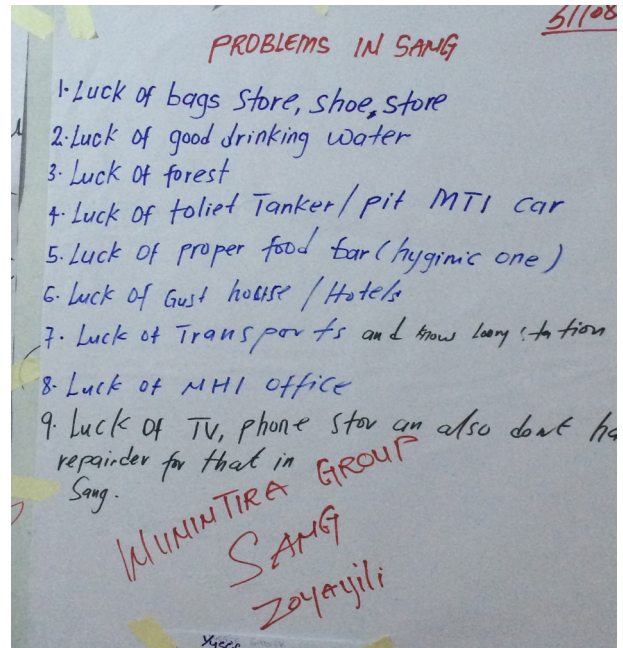 31/08
PROBLEMS IN SANG
1. Luck of bags Store, shoe, store
2. Luck of good drinking water
3. Luck of forest
4. Luck of toliet Tanker/ pit MTI car
5. Luck of proper food bar (hyginic one)
6. Luck of Gust house / Hotels
7. Luck of Transports and know
8. Luck of MHI office
9. Luck of TV, phone stor an also dont ha
repairder for that in
Sang.
WUNINTIRA GROUP
SANG
Zoyayili